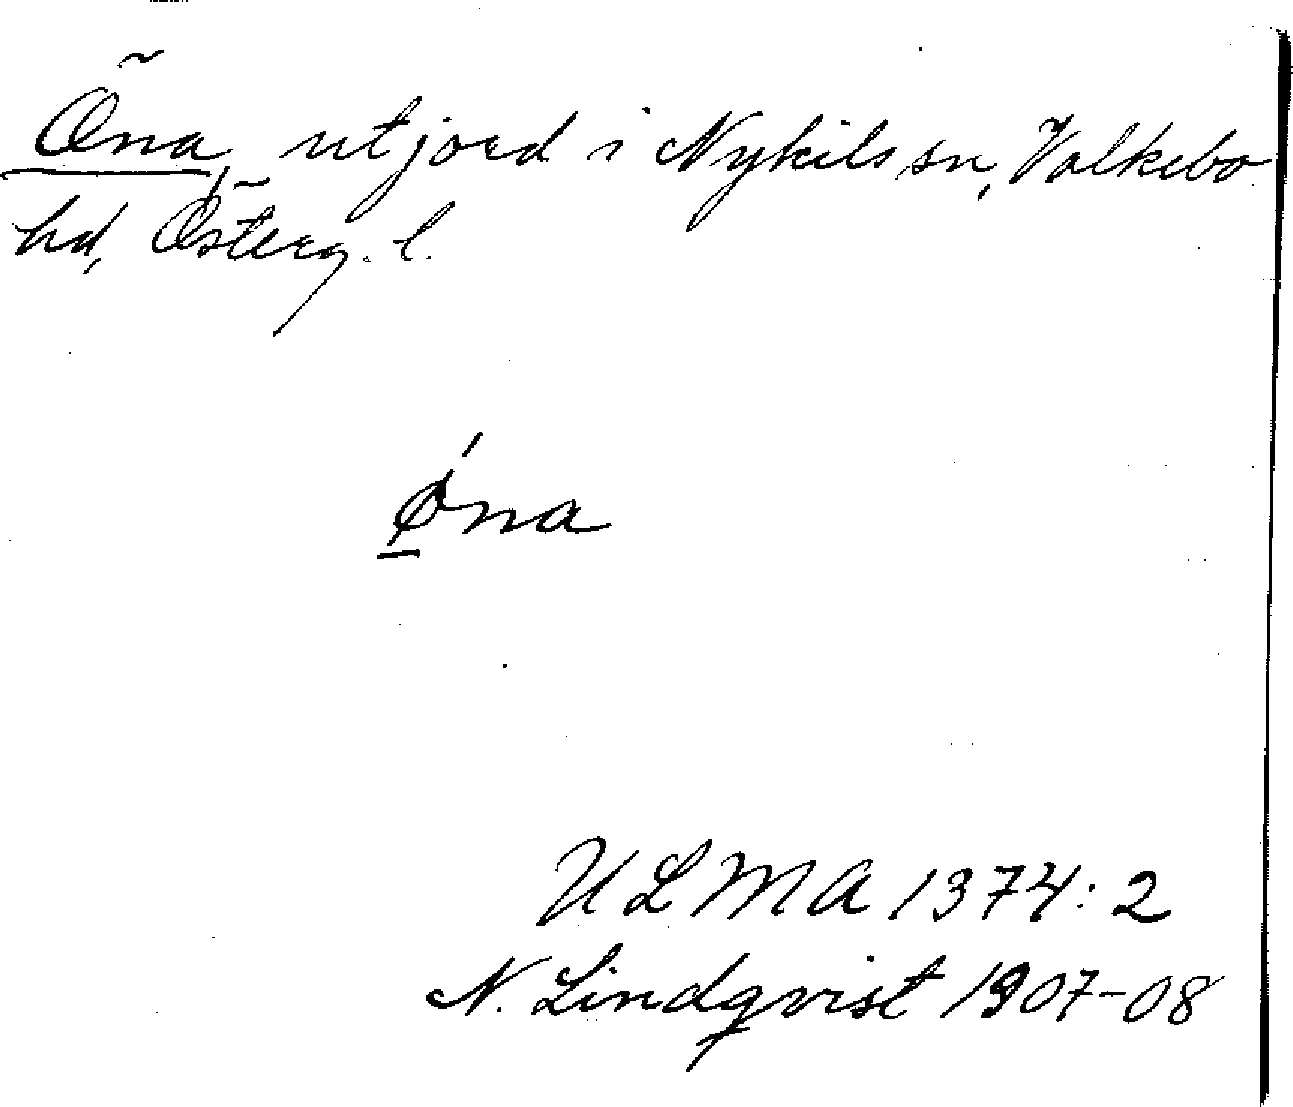 Öna, utjord i Nykils sn, Valkebo
hd, Österg. l.
ǿna
ULMA 1374:2
N. Lindqvist 1907-08